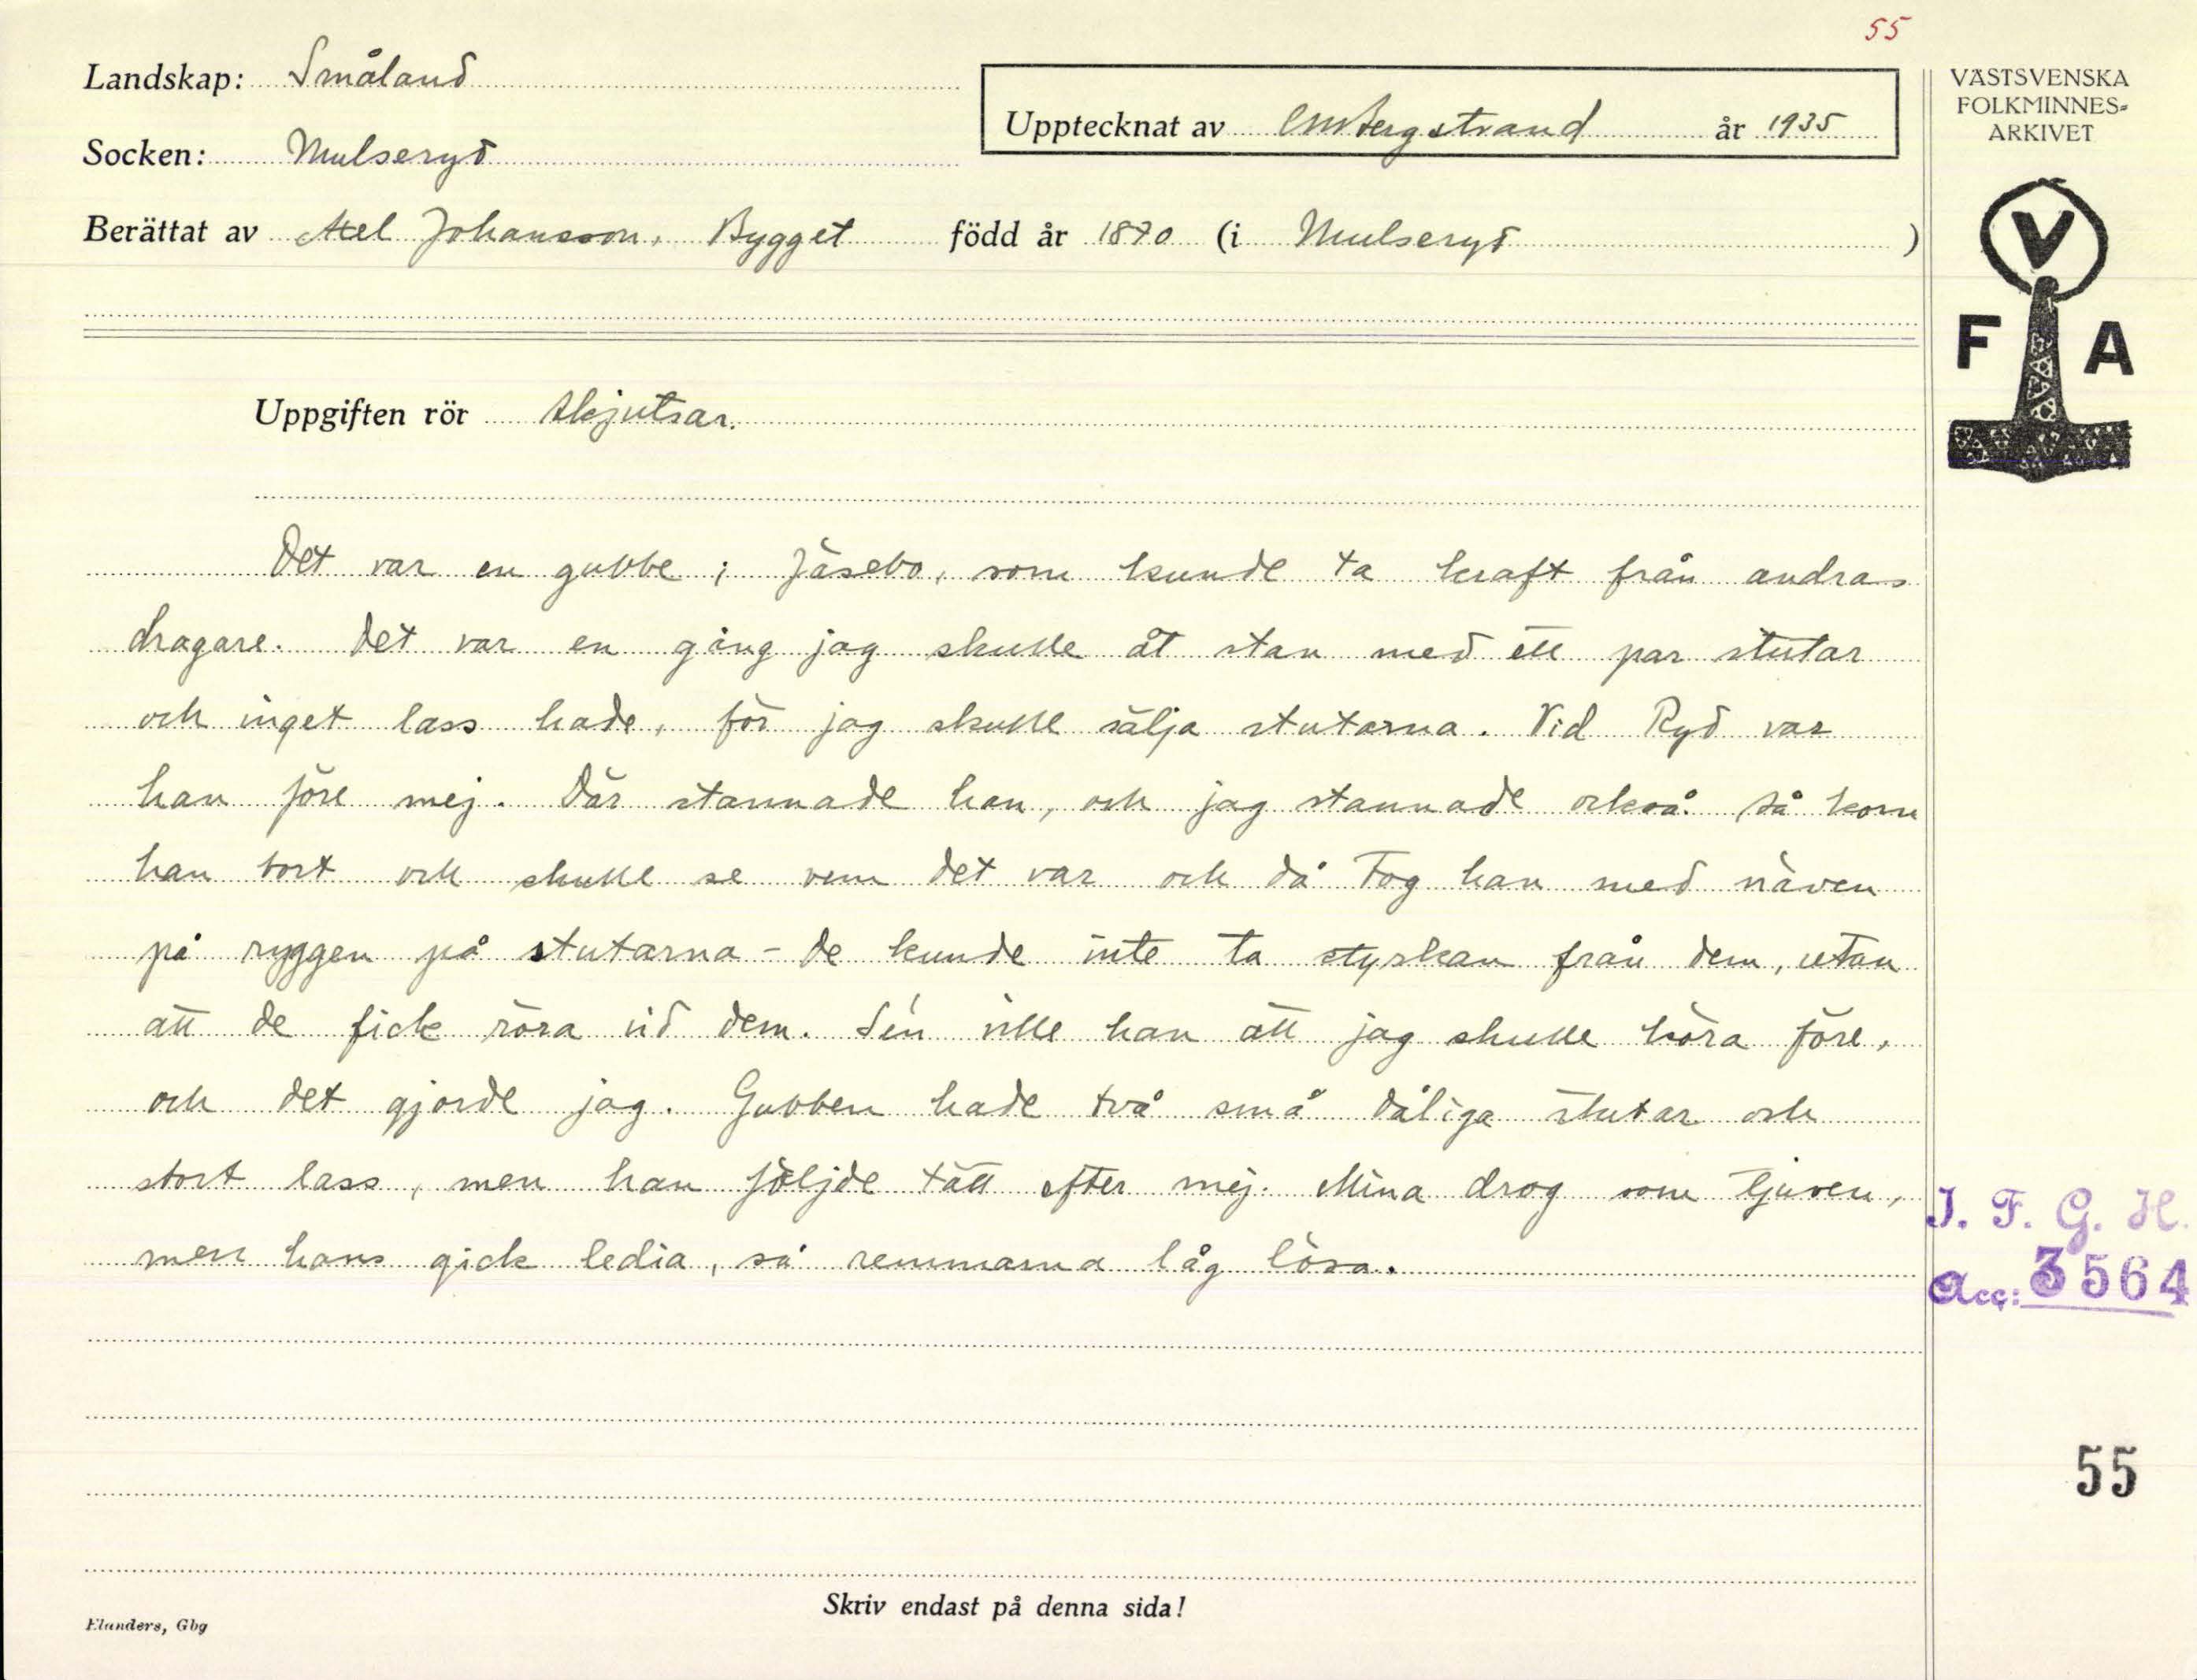 55
Landskap: Småland
Upptecknat av CMBergstrand år 1935
Socken: Mulseryd
Berättat av Axel Johansson, Bygget född år 1870 (i Mulseryd )
VÄSTSVENSKA
FOLKMINNES-
ARKIVET
V
F A
Uppgiften rör skjutsar.
Det var en gubbe i Jäsebo, som kunde ta kraft från andras
dragare. Det var en gång jag skulle åt stan med ett par stutar
och inget lass hade, för jag skulle sälja stutarna. Vid Ryd var
han före mej. Där stannade han, och jag stannade också. Så kom
han bort och skulle se vem det var och då tog han med näven
på ryggen på stutarna - de kunde inte ta styrkan från dem, utan
att de fick röra vid dem. Sén ville han att jag skulle köra före,
och det gjorde jag. Gubben hade två små dåliga stutar och
stort lass, men han följde tätt efter mej. Mina drog som tjuven,
men hans gick ledia, så remmarna låg lösa.
I. F. G. H.
Acc: 3564
55
Skriv endast på denna sida!
Elanders, Gbg